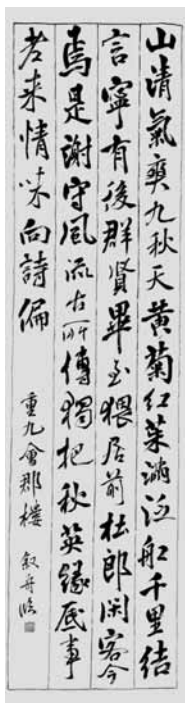 山清氣爽九秋天黄菊紅茱滿泛船千里結
言寧有後群賢畢至猥居前杜郎閑客今
焉是謝守風流古所傳獨把秋英緣底事
老来情味向詩偏
重九會郡樓 叙舟臨